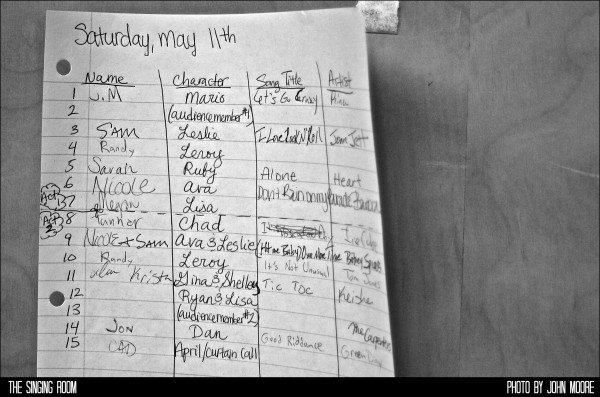 Saturday, May 11th
Name Character Song Title Artist
1 J.M Mario Let's Go Crazy Prince
2 (audience member #1)
3 SAM Leslie I Love Rock N Roll Joan Jett
4 Randy Leroy
5 Sarah Ruby Alone Heart
6 Nicole ava Don't Rain on my Parade
7 Lisa
8 Tanner Chad
9 Nicole & Sam ava & Leslie (Hit me Baby) One More Time Britney Spears
10 Randy Leroy It's Not Unusual Tom Jones
11 Krista Gina & Shelley Tic Toc Keisha
12 Ryan & Lisa
13 (audience member #2) The Carpenters
14 Jon Dan
15 April/curtain call Good Riddance Green Day
THE SINGING ROOM
PHOTO BY JOHN MOORE